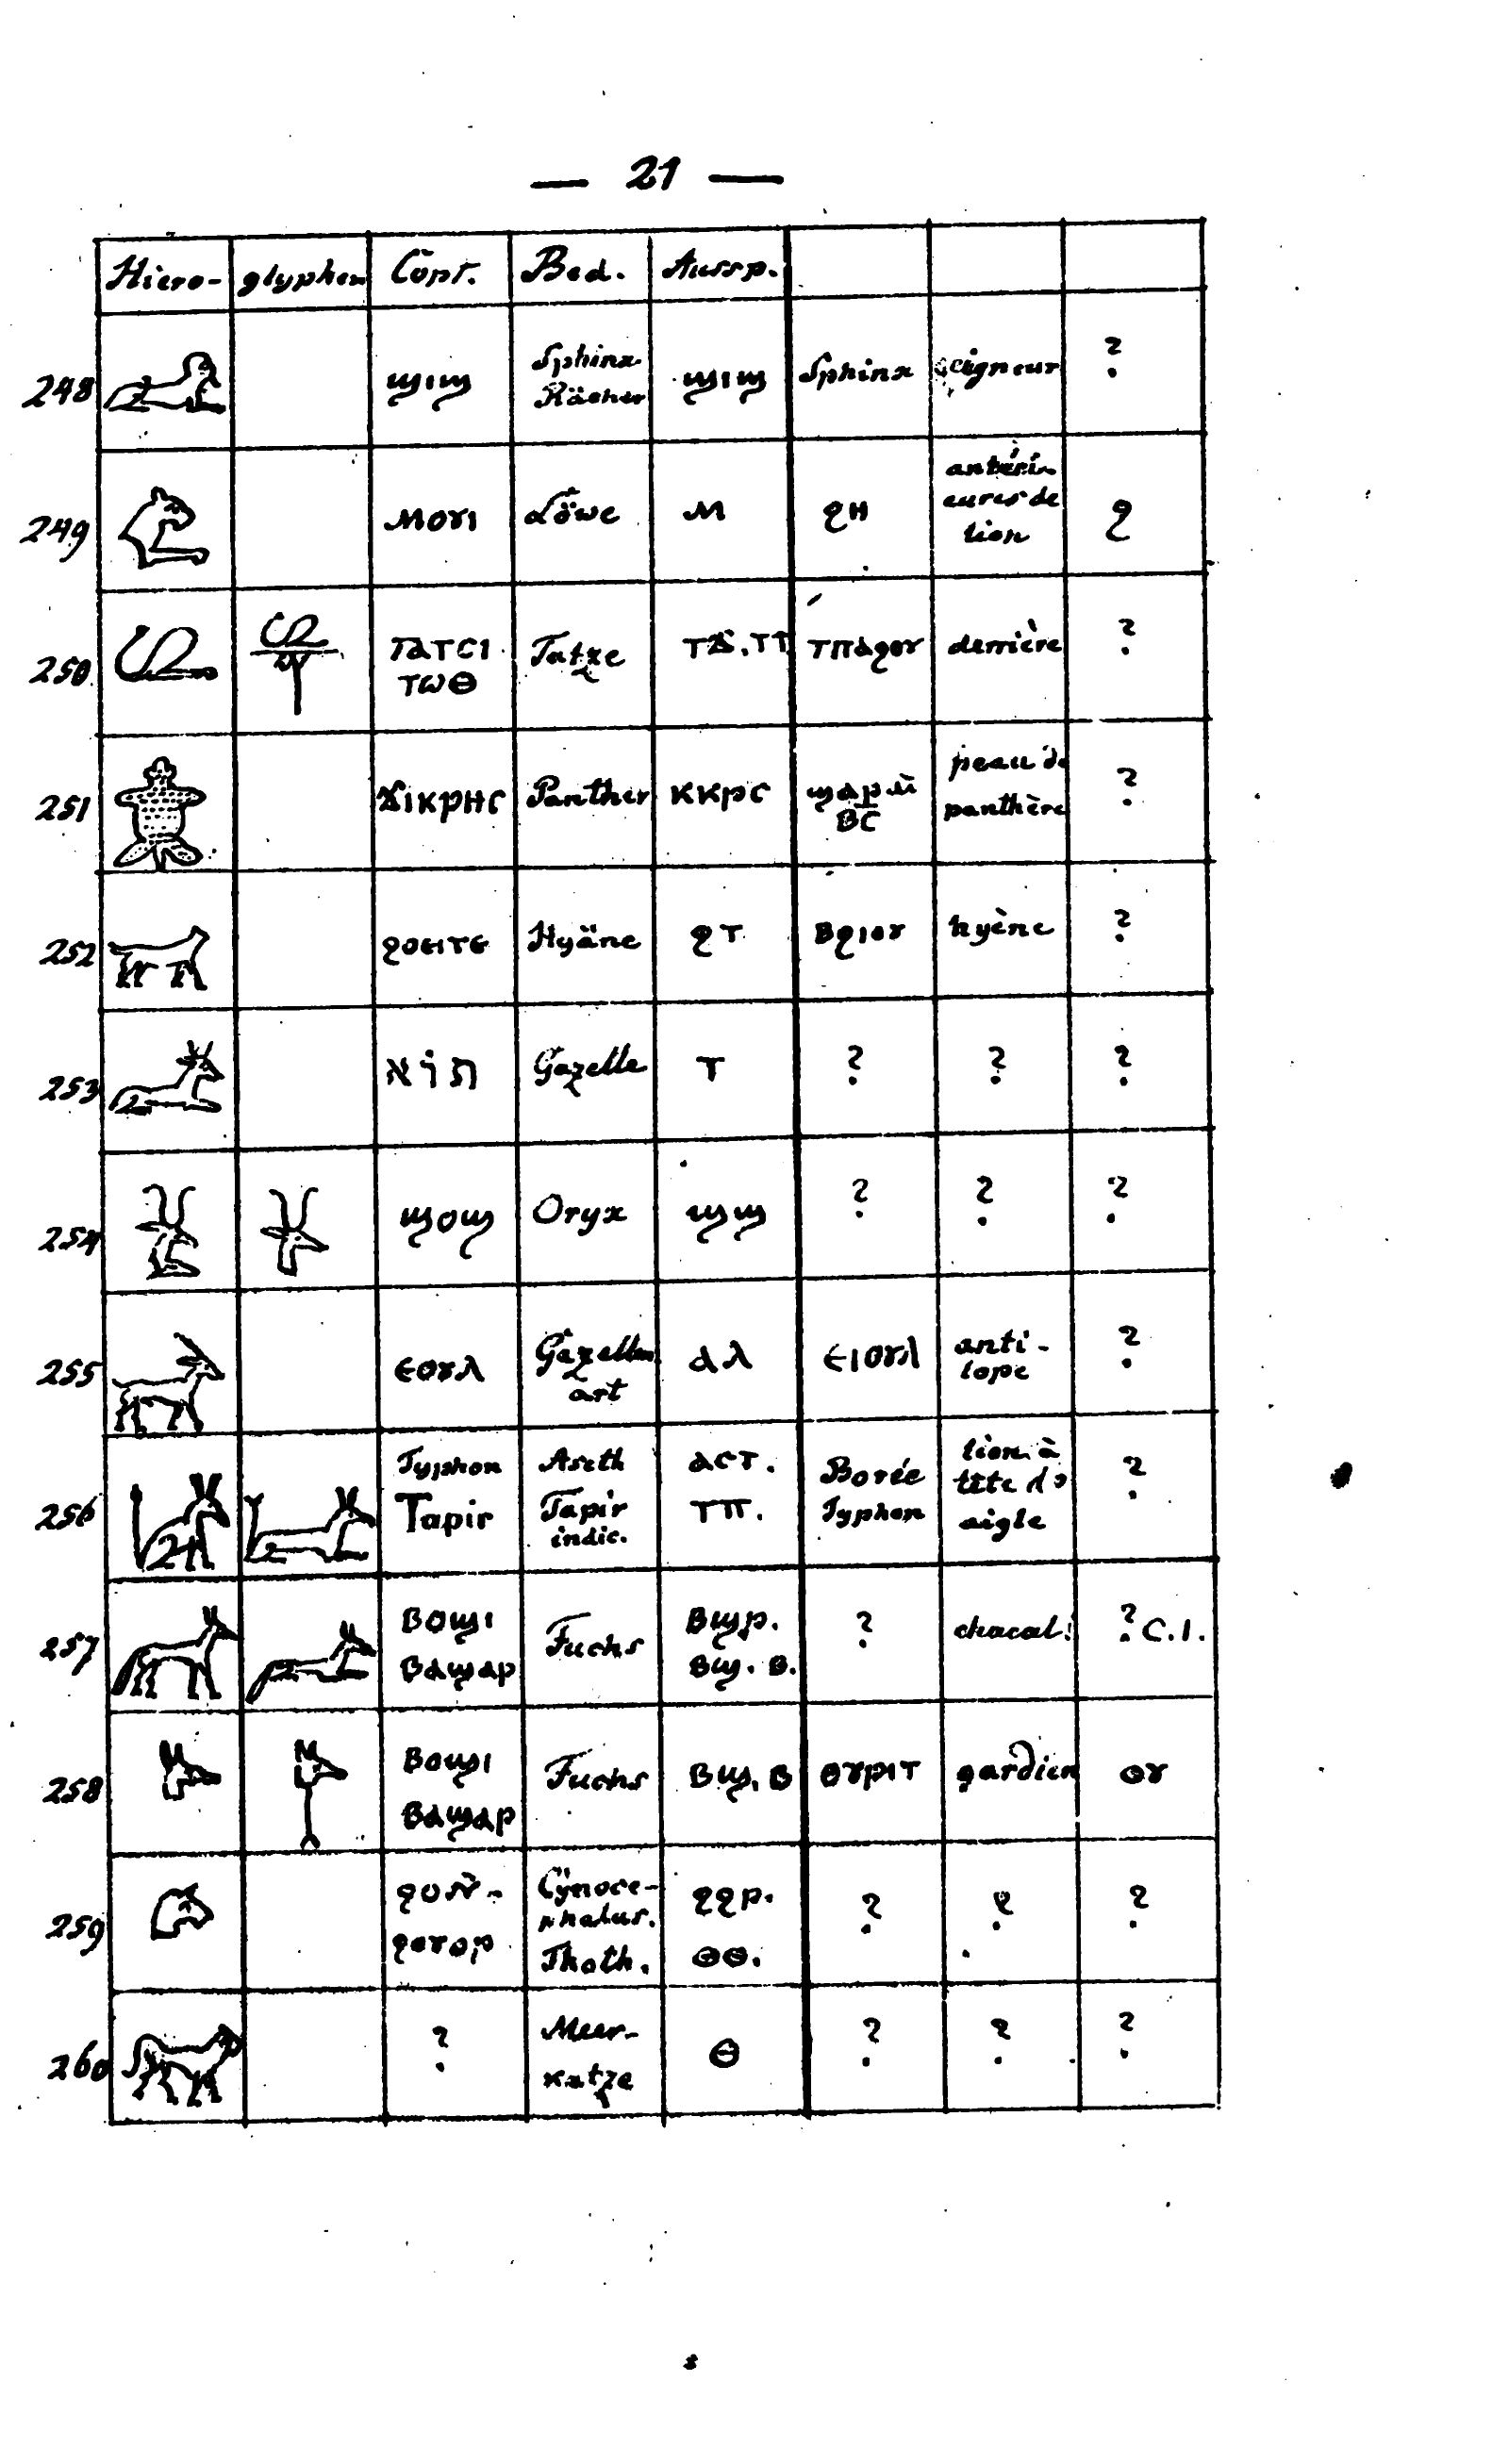 — 21 —
Hiero- glyphen Copt. Bed. Aussp.
248 ϣⲓϣ Sphinx Rächer ϣⲓϣ Sphinx seigneur ?
249 ⲙⲟⲩⲓ Löwe ⲙ ϩⲏ antéri- eures de lion ϩ
250 ⲧⲁⲧⲥⲓ ⲧⲱⲑ Tatze ⲧϪ.ⲧⲧ ⲧⲡⲁϩⲟⲩ derrière ?
251 ϫⲓⲕⲣⲏⲥ Panther ⲕⲕⲣⲥ peau de panthère ?
252 ϩⲟⲉⲓⲧⲉ Hyäne ϩⲧ ⲃϩⲓⲟⲩ hyène ?
253 תוֹא Gazelle ⲧ ? ? ?
254 ϣⲟϣ Oryx ϣϣ ? ? ?
255 ⲉⲟⲩⲗ Gazellen art ⲁⲗ ⲉⲓⲟⲩⲗ anti- lope ?
256 Typhon Tapir Aseth Tapir indic. ⲁⲥⲧ. ⲧⲡ. Borée Typhon lion à tête d' aigle ?
257 ⲃⲟϣⲓ ⲃⲁϣⲁⲣ Fuchs ⲃϣⲣ. ⲃϣ. ⲃ. ? chacal! ? C.I.
258 ⲃⲟϣⲓ ⲃⲁϣⲁⲣ Fuchs ⲃϣ. ⲃ ⲟⲩⲣⲓⲧ gardien ⲟⲩ
259 ϩⲟⲩⲟⲣ Cynoce- phalus. Thoth. ϩϩⲣ. ⲑⲑ. ? ? ?
260 ? Meer- katze ⲑ ? ? ?